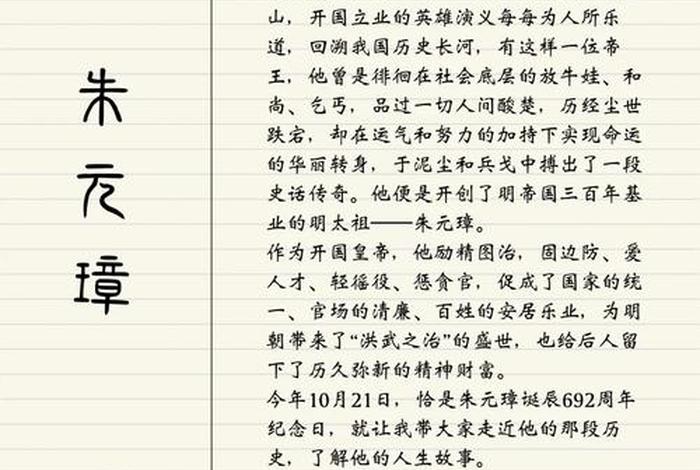 朱元璋
山，开国立业的英雄演义每每为人所乐
道，回溯我国历史长河，有这样一位帝
王，他曾是徘徊在社会底层的放牛娃、和
尚、乞丐，品过一切人间酸楚，历经尘世
跌宕，却在运气和努力的加持下实现命运
的华丽转身，于泥尘和兵戈中搏出了一段
史话传奇。他便是开创了明帝国三百年基
业的明太祖——朱元璋。
作为开国皇帝，他励精图治，固边防、爱
人才、轻徭役、惩贪官，促成了国家的统
一、官场的清廉、百姓的安居乐业，为明
朝带来了“洪武之治”的盛世，也给后人留
下了历久弥新的精神财富。
今年10月21日，恰是朱元璋诞辰692周年
纪念日，就让我带大家走近他的那段历
史，了解他的人生故事。